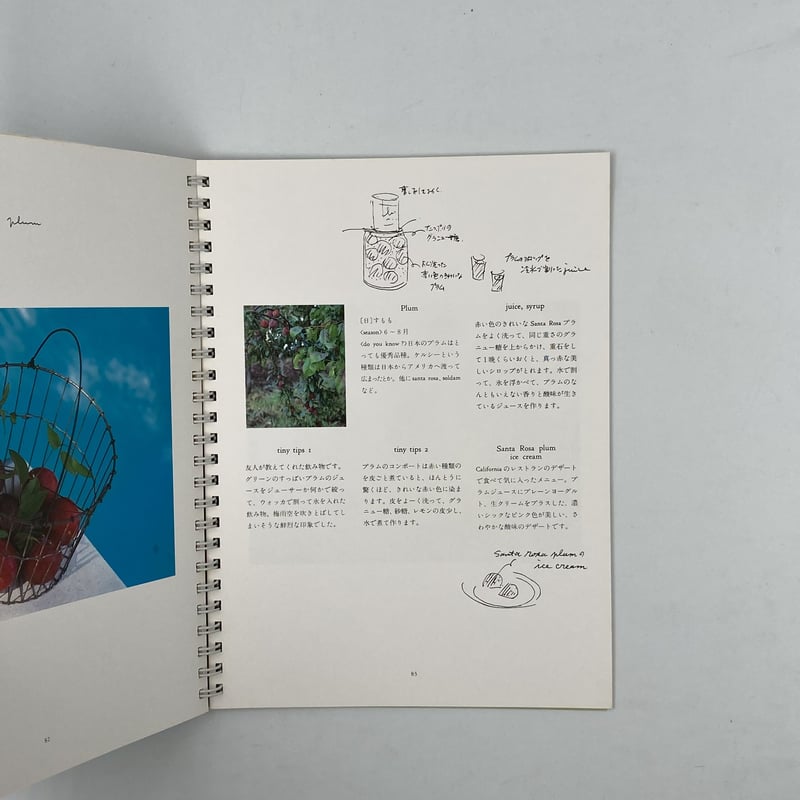 plum
重しをしておく
グラニュー糖
よく洗った
赤い色のきれいな
プラム
プラムのシロップを
冷水で割ったjuice
Plum
[日]すもも
〈season〉6〜8月
〈do you know?〉日本のプラムはと
っても優秀品種。ケルシーという
種類は日本からアメリカへ渡って
広まったとか。他にsanta rosa, soldam
など。
juice, syrup
赤い色のきれいなSanta Rosaプラ
ムをよく洗って、同じ重さのグラ
ニュー糖を上からかけ、重石をし
て1晩くらいおくと、真っ赤な美
しいシロップがとれます。水で割
って、氷を浮かべて、プラムのな
んともいえない香りと酸味が生き
ているジュースを作ります。
tiny tips 1
友人が教えてくれた飲み物です。
グリーンのすっぱいプラムのジュ
ースをジューサーか何かで絞っ
て、ウォッカで割って氷を入れた
飲み物。梅雨空を吹きとばしてし
まいそうな鮮烈な印象でした。
tiny tips 2
プラムのコンポートは赤い種類の
を皮ごと煮ていると、ほんとうに
驚くほど、きれいな赤い色に染ま
ります。皮をよーく洗って、グラ
ニュー糖、砂糖、レモンの皮少し、
水で煮て作ります。
Santa Rosa plum
ice cream
Californiaのレストランのデザート
で食べて気に入ったメニュー。プ
ラムジュースにプレーンヨーグル
ト、生クリームをプラスした、濃
いシックなピンク色が美しい、さ
わやかな酸味のデザートです。
Santa rosa plumの
ice cream
82
83